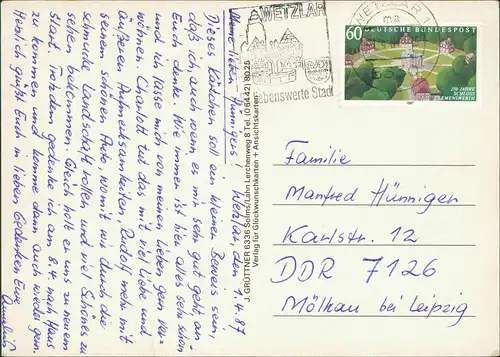 Wetzlar, 1.4.87
Meine lieben Hünnigers!
Dieses Kärtchen soll ein kleiner Beweis sein,
daß ich, auch wenn es mir sehr gut geht, an
Euch denke. Wie immer ist hier alles sehr schön
und ich lasse mich von meinen Lieben gern ver-
wöhnen. Charlott tut das mit viel Liebe und
äußeren Aufmerksamkeiten, Rudolf mehr mit
seinem schönen Auto, womit wir durch die
schmucke Landschaft rollen und viel Schönes zu
sehen bekommen. Gleich holt er uns zu neuem
Start. Trotzdem gedenke ich am 8.4. nach Haus
zu kommen und komme dann auch wieder gern.
Herzlich grüßt Euch in lieben Gedenken Eure
J. GRÜTTNER 6336 Solms/Lahn Lerchenweg 8 Tel. (06442) 8025
Verlag für Glückwunschkarten + Ansichtskarten
WETZLAR
Lebenswerte Stadt
WETZLAR 1
60 DEUTSCHE BUNDESPOST
250 JAHRE
SCHLOSS
CLEMENSWERTH
Familie
Manfred Hünniger
Karlstr. 12
DDR 7126
Mölkau bei Leipzig